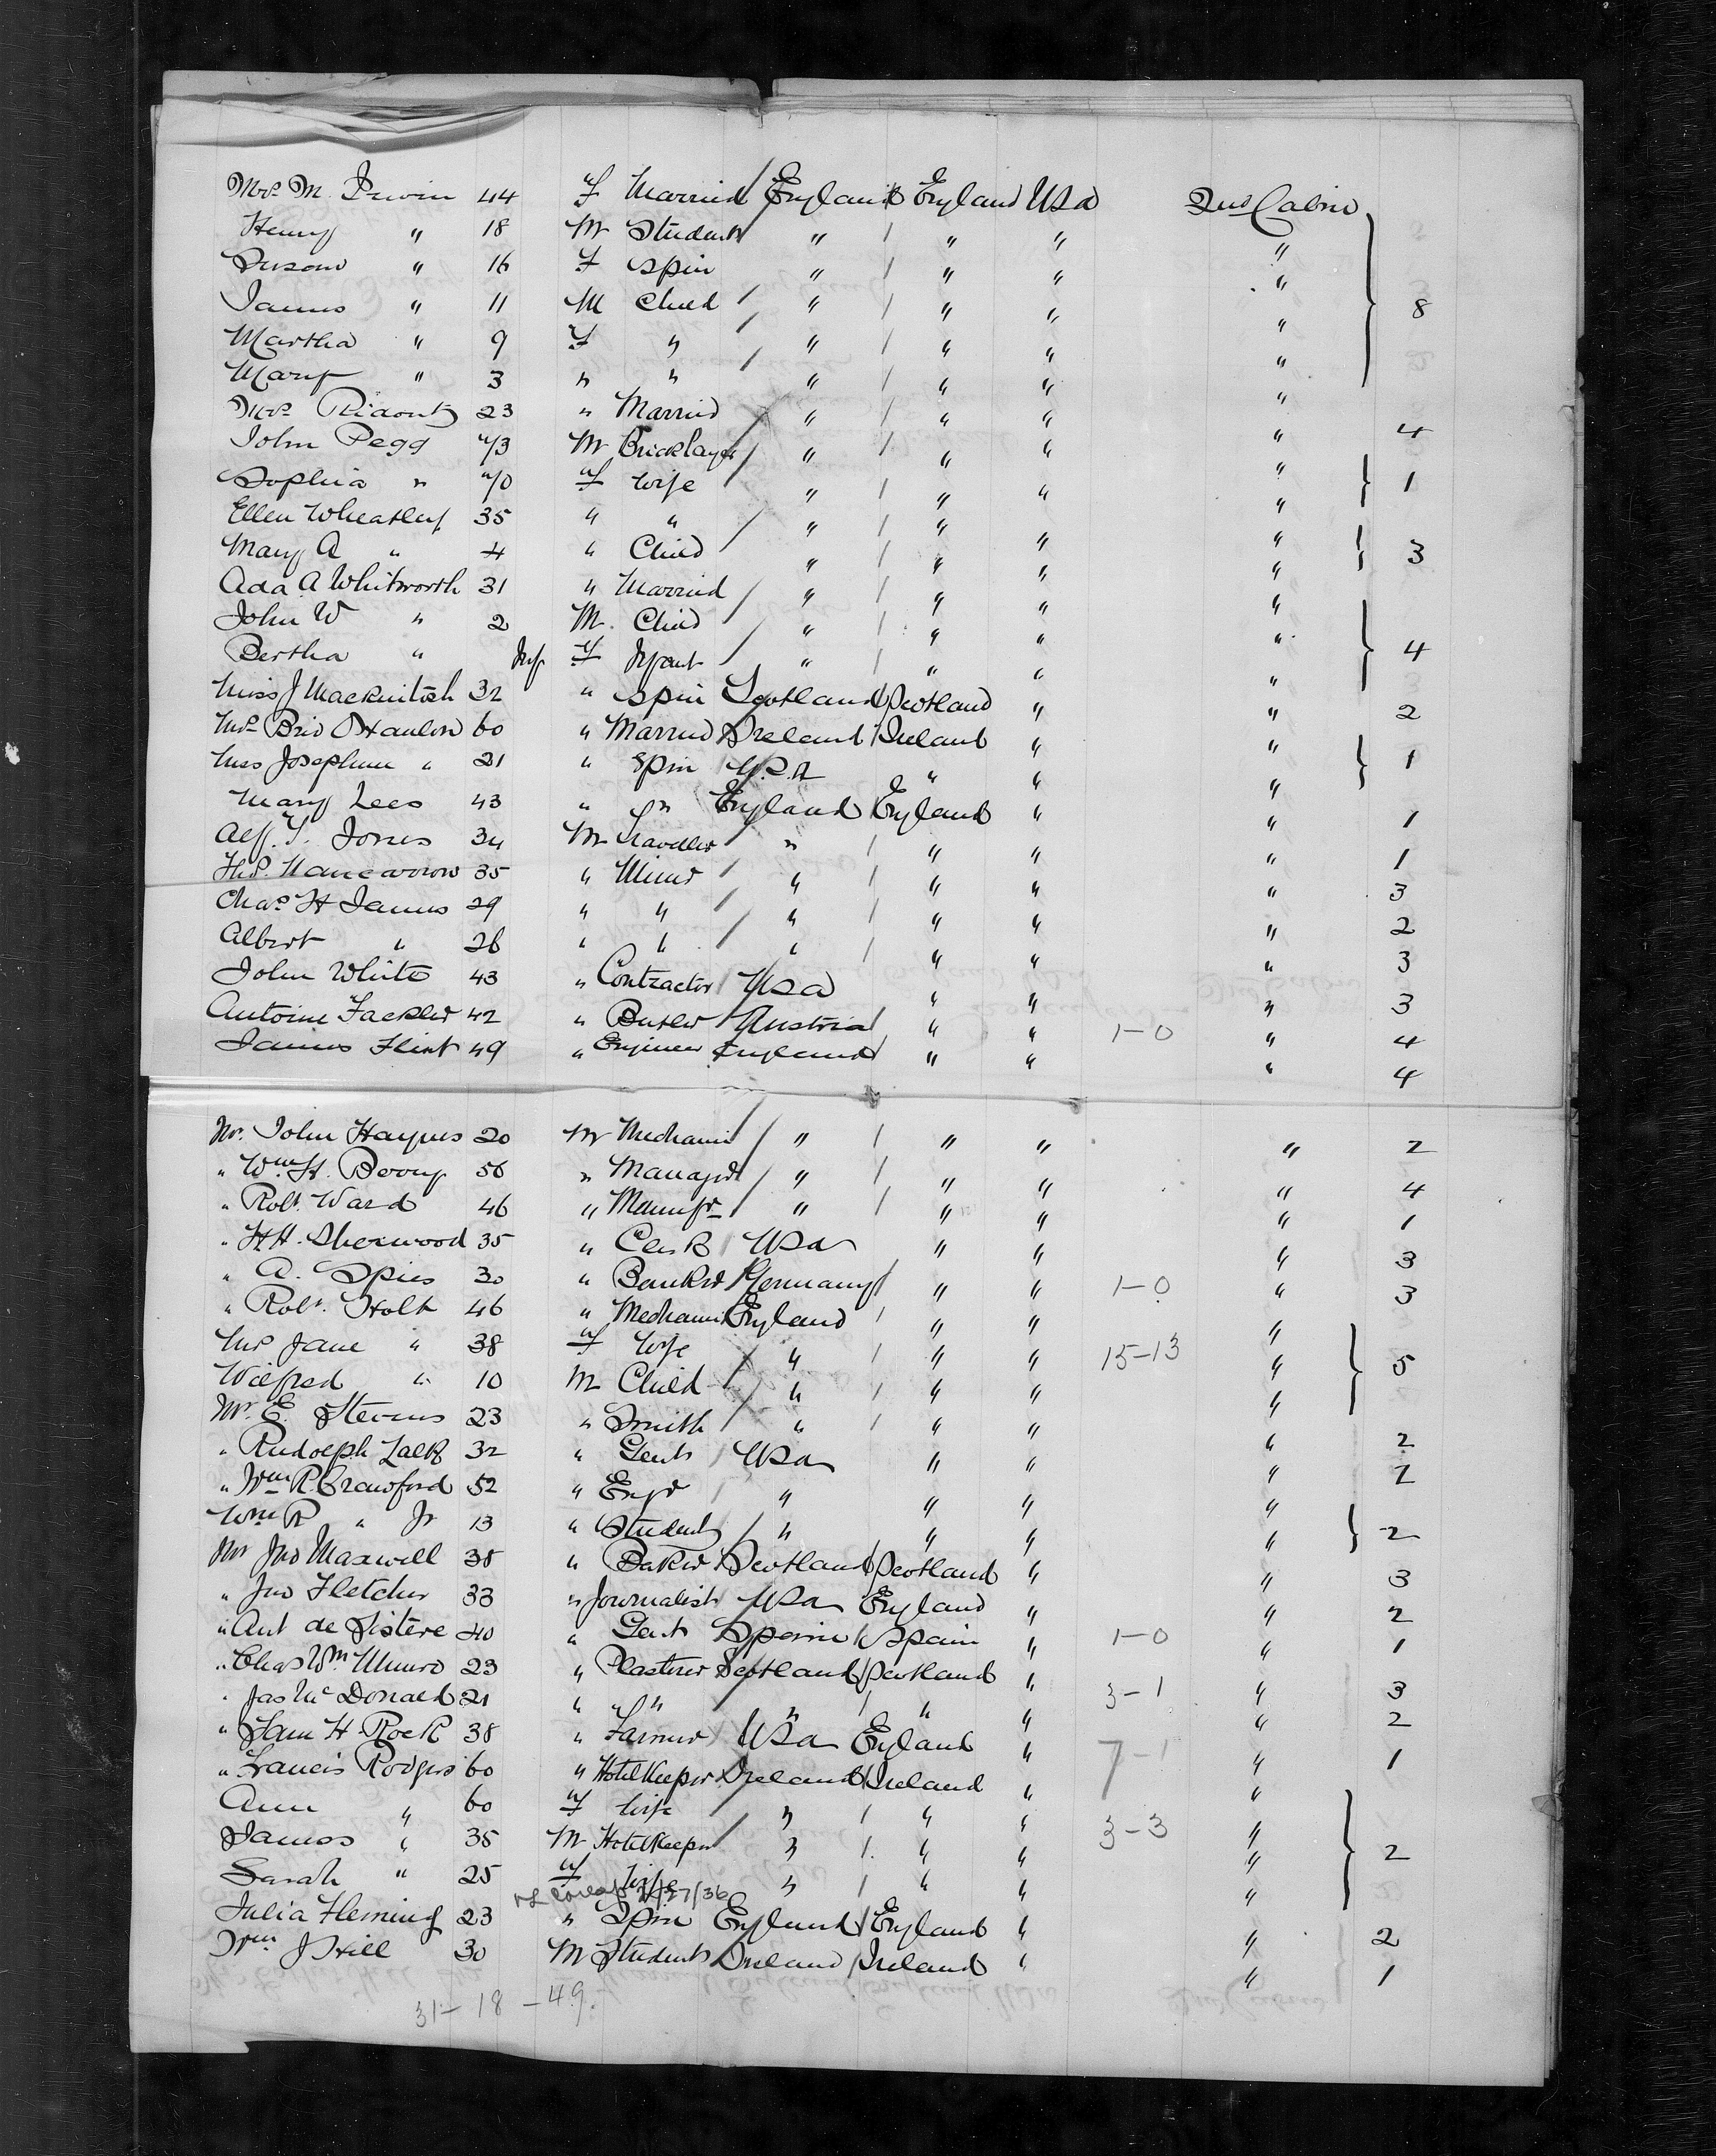 Mrs M. Irwin 44 F Married England England USA 2nd Cabin
Henry " 18 M Student " " " "
Susan " 16 F Spin " " " "
James " 11 M Child " " " " 8
Martha " 9 F " " " " "
Mary " 3 " " " " " "
Mrs Ridout 23 " Married " " " " 4
John Pegg 73 M Bricklayer " " " "
Sophia " 70 F Wife " " " " 1
Ellen Wheatley 35 " " " " " "
Mary A " 4 " Child " " " " 3
Ada A Whitworth 31 " Married " " " "
John W " 2 M. Child " " " " 4
Bertha " Inf F Infant " " " "
Miss J Mackintosh 32 " Spin Scotland Scotland " " 2
Mrs Brid O'Hanlon 60 " Married Ireland Ireland " " 1
Miss Josephine " 21 " Spin U.S.A " " "
Mary Lees 43 " " England England " " 1
Alf. T. Jones 34 M Traveller " " " " 1
Thos. Nancarrow 35 " Miner " " " " 3
Chas H James 29 " " " " " " 2
Albert " 26 " " " " " " 3
John White 43 " Contractor USA " " " 3
Antoine Fackler 42 " Butler Austria " " 1-0 " 4
James Flint 49 " Engineer England " " " 4
Mr. John Haynes 20 M Mechanic " " " " 2
" Wm H. Berry 56 " Manager " " " " 4
" Robt. Ward 46 " Manufr " " " " 1
" H H. Sherwood 35 " Clerk USA " " " 3
" A. Spies 30 " Banker Germany " " 1-0 " 3
" Robt. Holt 46 " Mechanic England " " "
Mrs Jane " 38 F Wife " " " 15-13 " 5
Wilfred " 10 M Child " " " "
Mr. E. Stevens 23 " Smith " " " " 2
" Rudolph Falk 32 " Gent USA " " " 2
" Wm R. Crawford 52 " Engr " " " "
Wm R " Jr 13 " Student " " " " 2
Mr Jno Maxwell 38 " Baker Scotland Scotland " " 3
" Jno Fletcher 33 " Journalist USA England " " 2
" Ant de Sistere 40 " Gent Spain Spain " 1-0 " 1
" Chas Wm Munro 23 " Plasterer Scotland Scotland " " 3
" Jas McDonald 21 " " " " " 3-1 " 2
" Sam H. Rock 38 " Farmer USA England " " 1
" Francis Rodgers 60 " Hotel Keeper Ireland Ireland " 7-1 "
Ann " 60 F Wife " " " "
James " 35 M Hotel Keeper " " " 3-3 " 2
Sarah " 25 F Wife " " " "
2/27/36
Julia Fleming 23 " Spin England England " " 2
Wm J Hill 30 M Student Ireland Ireland " " 1
31-18-49.